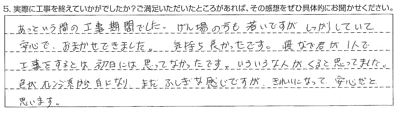 5. 実際に工事を終えていかがでしたか？ご満足いただいたところがあれば、その感想をぜひ具体的にお聞かせください。
あっという間の工事期間でした。げん場の方も若いですが しっかりしていて
安心で、おまかせできました。気持ち良かったです。 若が1人で
工事をするとは 初日には 思ってなかったです。いろいろな人が くると思ってました。
色が オレンジから 白になり まだ ふしぎな 感じですが、きれいになって 安心だと
思います。